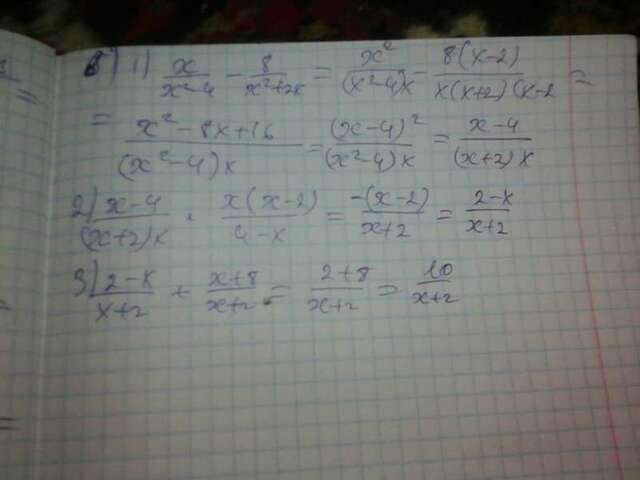 в) 1) x/(x²-4) - 8/(x²+2x) = x²/((x²-4)x) - 8(x-2)/(x(x+2)(x-2 =
= (x²-8x+16)/((x²-4)x) = (x-4)²/((x²-4)x) = (x-4)/((x+2)x)
2) (x-4)/((x+2)x) · x(x-2)/(4-x) = -(x-2)/(x+2) = (2-x)/(x+2)
3) (2-x)/(x+2) + (x+8)/(x+2) = (2+8)/(x+2) = 10/(x+2)